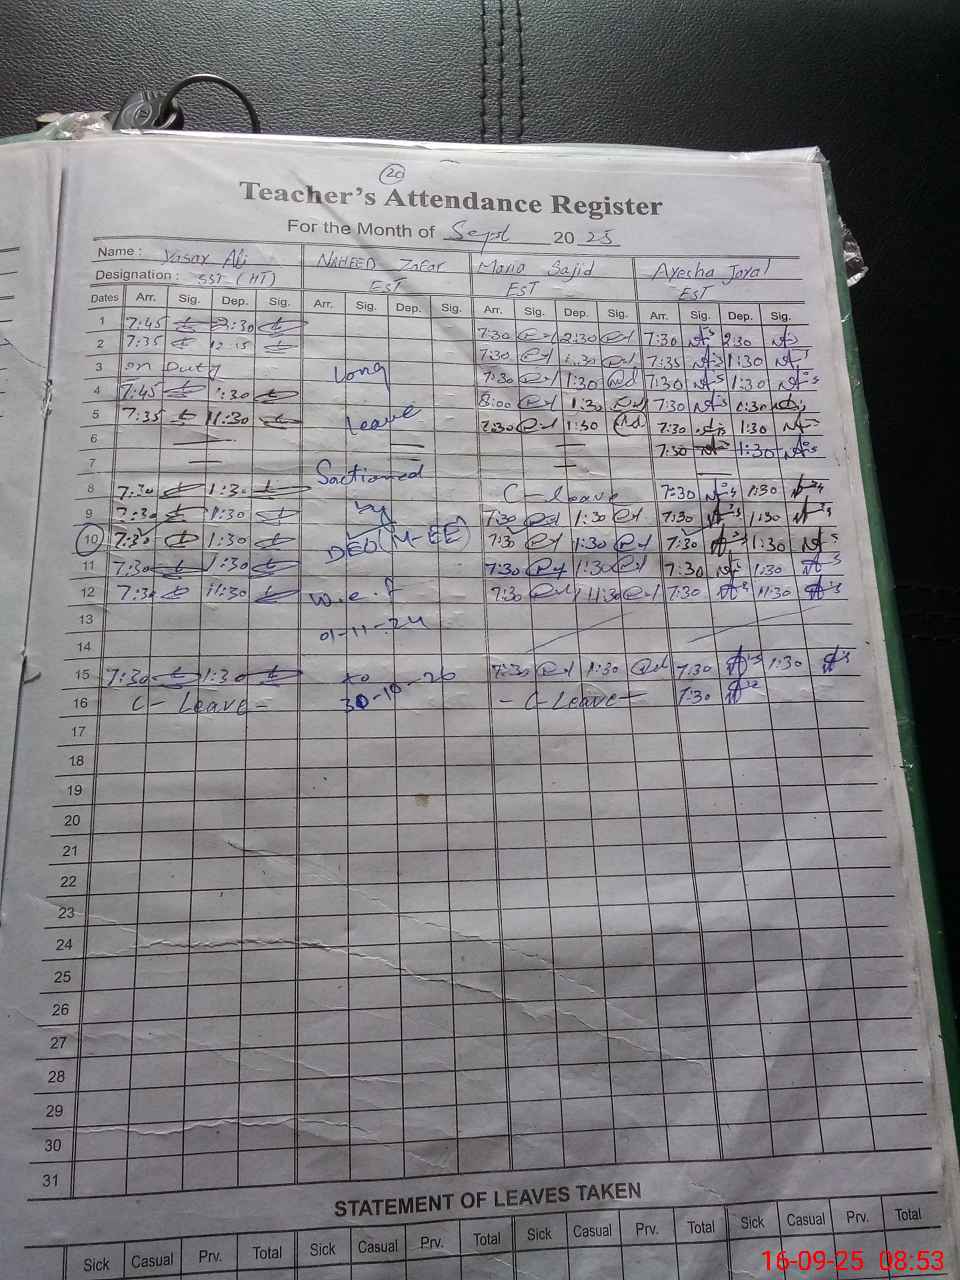 20
Teacher's Attendance Register
For the Month of Sept 2025
Name : Yasar Ali NAHEED Zafar Maria Sajid Ayesha
Designation : SST (HT) EST EST EST
Dates Arr. Sig. Dep. Sig. Arr. Sig. Dep. Sig. Arr. Sig. Dep. Sig. Arr. Sig. Dep. Sig.
1 7:45 7:30 2:30 7:30 2:30
2 7:35 12:15 7:30 1:30 7:35 1:30
3 on Duty Long 7:30 1:30 7:30 1:30
4 7:45 1:30 8:00 1:30 7:30 1:30
5 7:35 11:30 Leave 7:30 1:30 7:30 1:30
6 7:30 1:30
7 Sactioned
8 7:30 1:30 C-leave 7:30 1:30
9 7:30 1:30 by 7:30 1:30 7:30 1:30
10 7:30 1:30 DEO(M-EE) 7:30 1:30 7:30 1:30
11 7:30 1:30 7:30 1:30 7:30 1:30
12 7:30 11:30 w.e.f 7:30 11:30 7:30 11:30
13 01-11-24
14
15 7:30 1:30 to 7:30 1:30 7:30 1:30
16 C- Leave - 30-10-26 - C-Leave - 7:30
17
18
19
20
21
22
23
24
25
26
27
28
29
30
31
STATEMENT OF LEAVES TAKEN
Sick Casual Prv. Total Sick Casual Prv. Total Sick Casual Prv. Total Sick Casual Prv. Total
16-09-25 08:53